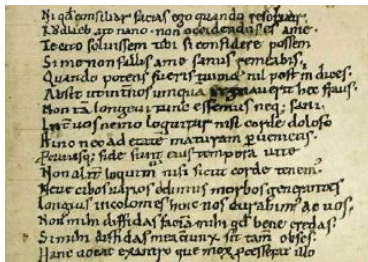 Ni qđ consiliar facias ego quando resoluar.
Ruodlieb ait nano. non occidendus es a me.
Te cito soluissem tibi si confidere possem
Si me non fallas a me sanus remeabis,
Quando potens fueris nil post
Absit ut int nos umqua regnauerit hec fraus.
Non tā longeui tunc essemus neq; sani.
Int uos nemo loquitur nisi corde doloso
Hinc nec ad etatē maturam ꝑuenietis.
sunt eius tempora uite
Non alit loquim nisi sicut corde tenem
Neue cibos uarios edimus morbos generantes
Longius incolomes hinc nos durabim ac uos.
Non mihi diffidas faciā mihi qđ bene credas.
Si mihi diffidas mea ɔiunx sit tam obses.
Hanc uocat ex antro que mox processerat illo